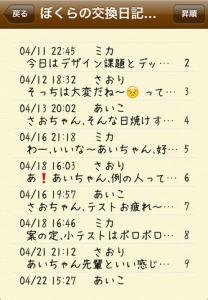 戻る
ぼくらの交換日記...
昇順
04/11 22:45 ミカ
今日はデザイン課題とデッ… 2
04/12 18:32 さおり
そっちは大変だね〜😣 って… 3
04/13 20:02 あいこ
さおちゃん、そんな日焼けす… 4
04/16 21:18 ミカ
わー、いいな〜あいちゃん、好… 5
04/18 16:03 さおり
あ❗あいちゃん、例の人って… 6
04/16 19:57 あいこ
さおちゃん、テストお疲れ〜… 7
04/18 16:46 ミカ
案の定、小テストはボロボロ… 8
04/21 21:12 さおり
あいちゃん先輩といい感じ… 9
04/22 15:27 あいこ